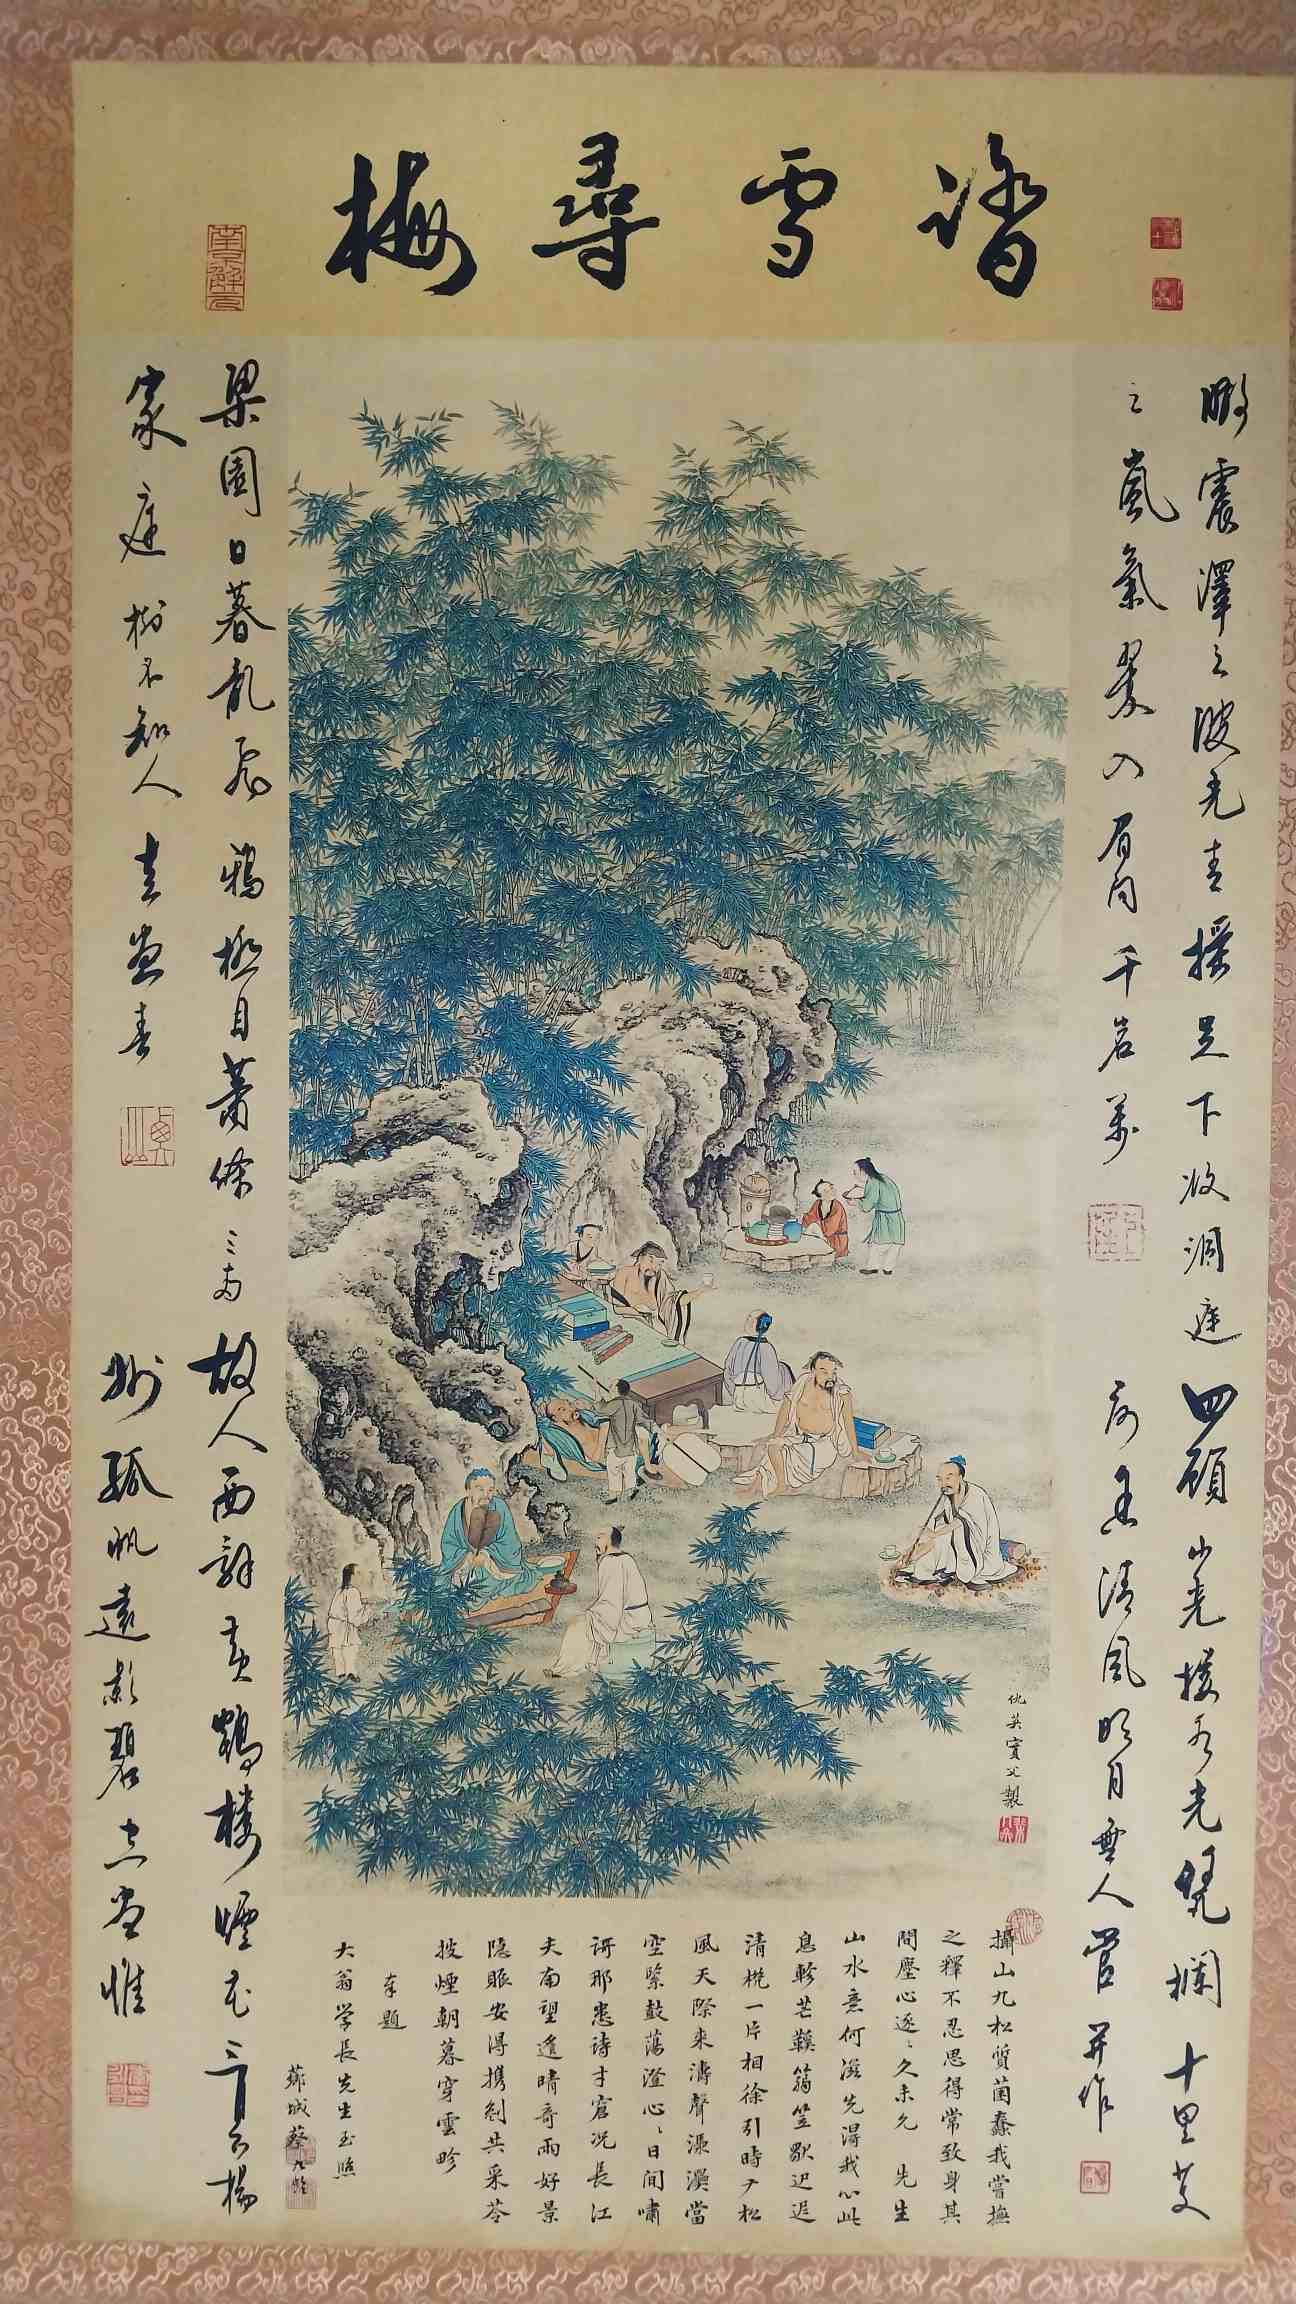 踏雪尋梅
震澤之波光青接足下收洞庭
之嵐氣翠入眉間千岩萬
四顧山光接水光凭欄十里芰
荷香清風明月無人管并作
仇英實父製
梁園日暮亂飛鴉極目蕭條三兩
家庭樹不知人去盡春
故人西辭黃鶴樓煙花三月下揚
州孤帆遠影碧空盡惟
攝山九松質菌蠢我嘗撫
之釋不忍思得常致身其
間塵心逐逐久未允 先生
山水意何滋先得我心此
息軫芒鞵篛笠歇迟迟
清梲一片相徐引時一松
風天際來濤聲漫演當
空緊鼓蕩澄心心日間嘯
謌那患詩才窘況長江
天南望逢晴奇雨好景
隱賑安得携剑共采苓
披煙朝暮穿雲畛
奉題
大翁学長先生玉照
蔡九齡